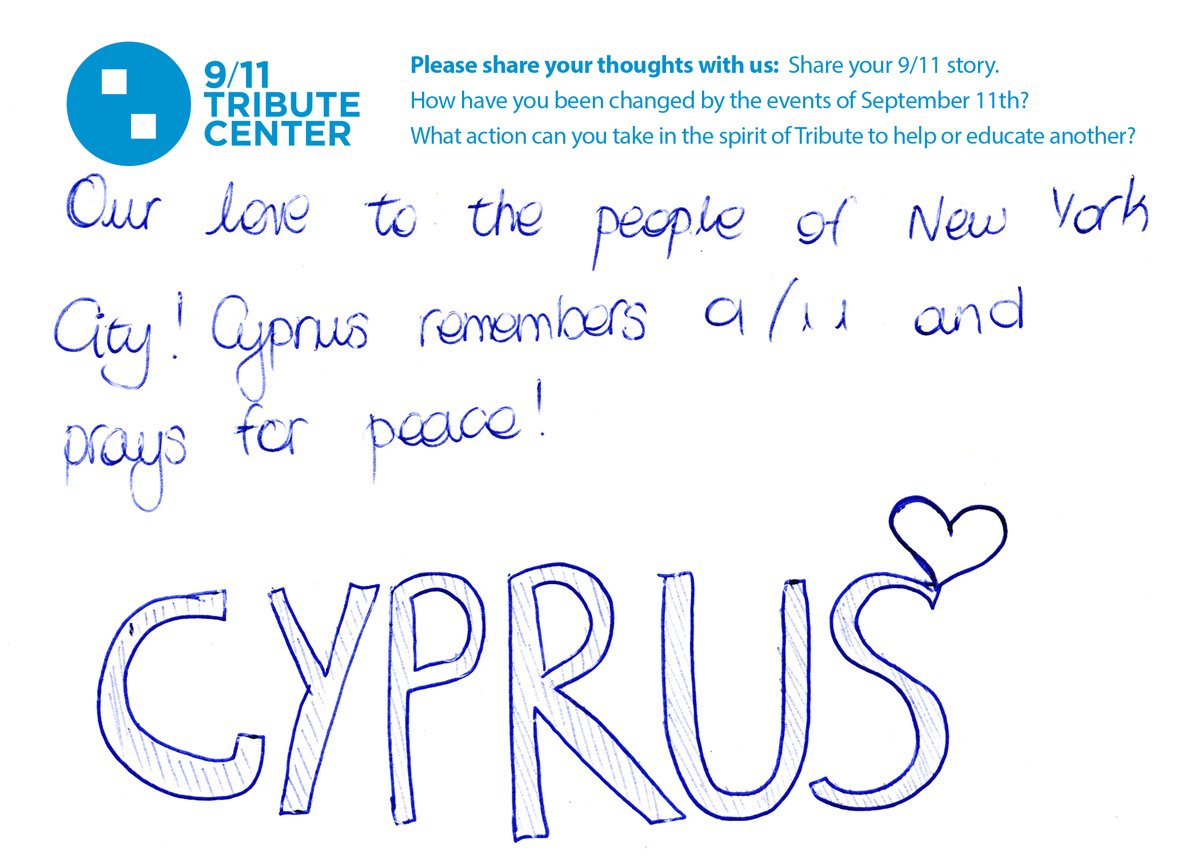 9/11
TRIBUTE
CENTER
Please share your thoughts with us: Share your 9/11 story.
How have you been changed by the events of September 11th?
What action can you take in the spirit of Tribute to help or educate another?
Our love to the people of New York
City! Cyprus remembers 9/11 and
prays for peace!
CYPRUS